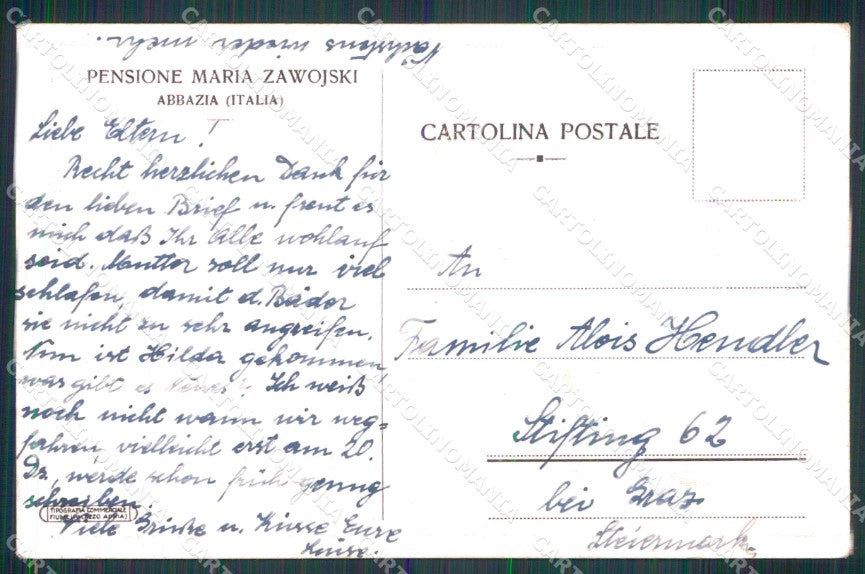 Nächstens wieder mehr..
PENSIONE MARIA ZAWOJSKI
ABBAZIA (ITALIA)
Liebe Eltern!
Recht herzlichen Dank für
den lieben Brief u. freut es
mich daß Ihr Alle wohlauf
seid. Mutter soll nur viel
schlafen, damit d. Bäder
sie nicht zu sehr angreifen.
Nun ist Hilda gekommen
was gibt es Neues? Ich weiß
noch nicht wann wir weg=
fahren, vielleicht erst am 20.
Dz, werde schon früh genug
schreiben.
Viele Grüsse u. Küsse Eure
Luise.
TIPOGRAFIA COMMERCIALE
CARTOLINA POSTALE
An
Familie Alois Hendler
Stifting 62
bei Graz
Steiermark.
CARTOLINOMANIA